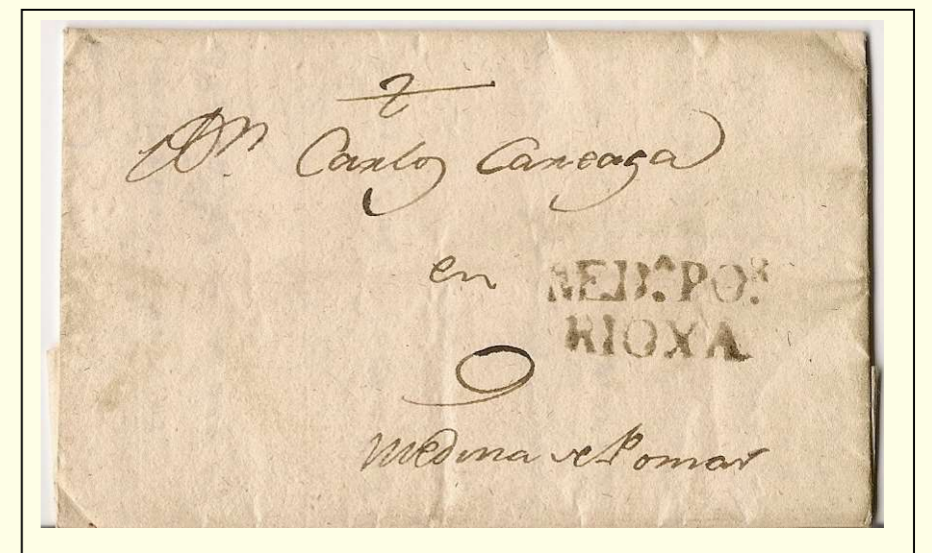 Dn. Carlos Careaga
en
MEDª. POR.
RIOXA
Medina de Pomar